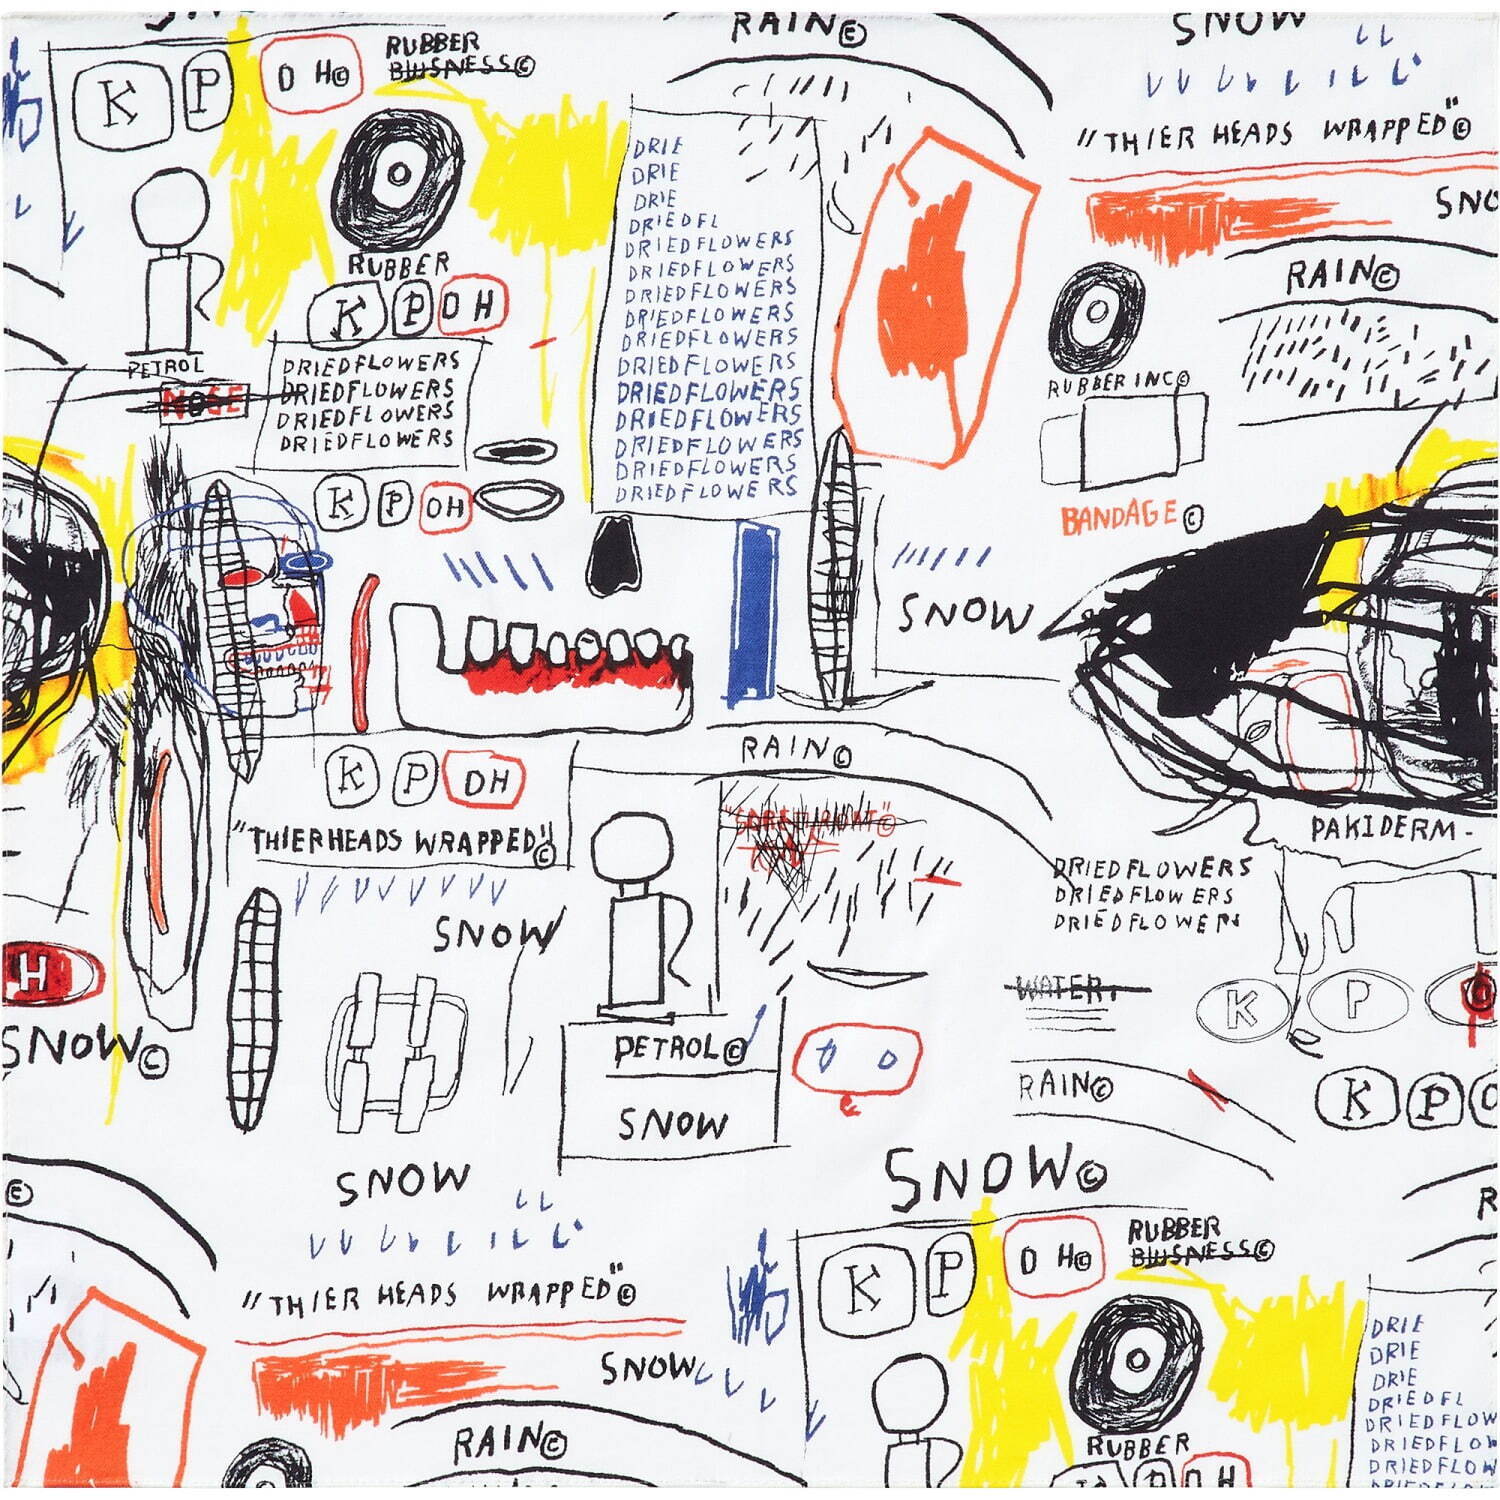 SNOW
RAIN©
RUBBER
BUISNESS©
K P O H©
"THIER HEADS WRAPPED"©
SNO
DRIE
DRIE
DRIE
DRIEDFL
DRIEDFLOWERS
DRIEDFLOWERS
DRIEDFLOWERS
DRIEDFLOWERS
DRIEDFLOWERS
DRIEDFLOWERS
DRIEDFLOWERS
DRIEDFLOWERS
DRIEDFLOWERS
DRIEDFLOWERS
DRIEDFLOWERS
RUBBER
K P O H
RAIN©
PETROL
NOSE
DRIEDFLOWERS
DRIEDFLOWERS
DRIEDFLOWERS
DRIEDFLOWERS
RUBBER INC©
K P OH
BANDAGE©
SNOW
RAIN©
K P OH
"THIERHEADS WRAPPED"©
PAKIDERM-
DRIEDFLOWERS
DRIEDFLOWERS
DRIEDFLOWERS
SNOW
H
WATER
K P O
SNOW©
PETROL©
SNOW
RAIN©
K P O
SNOW
SNOW©
©
R
RUBBER
BUISNESS©
K P O H©
"THIER HEADS WRAPPED"©
SNOW
DRIE
DRIE
DRIE
DRIEDFL
DRIEDFLOW
DRIEDFLOW
DRIEDFLOW
RAIN©
RUBBER
K P O H